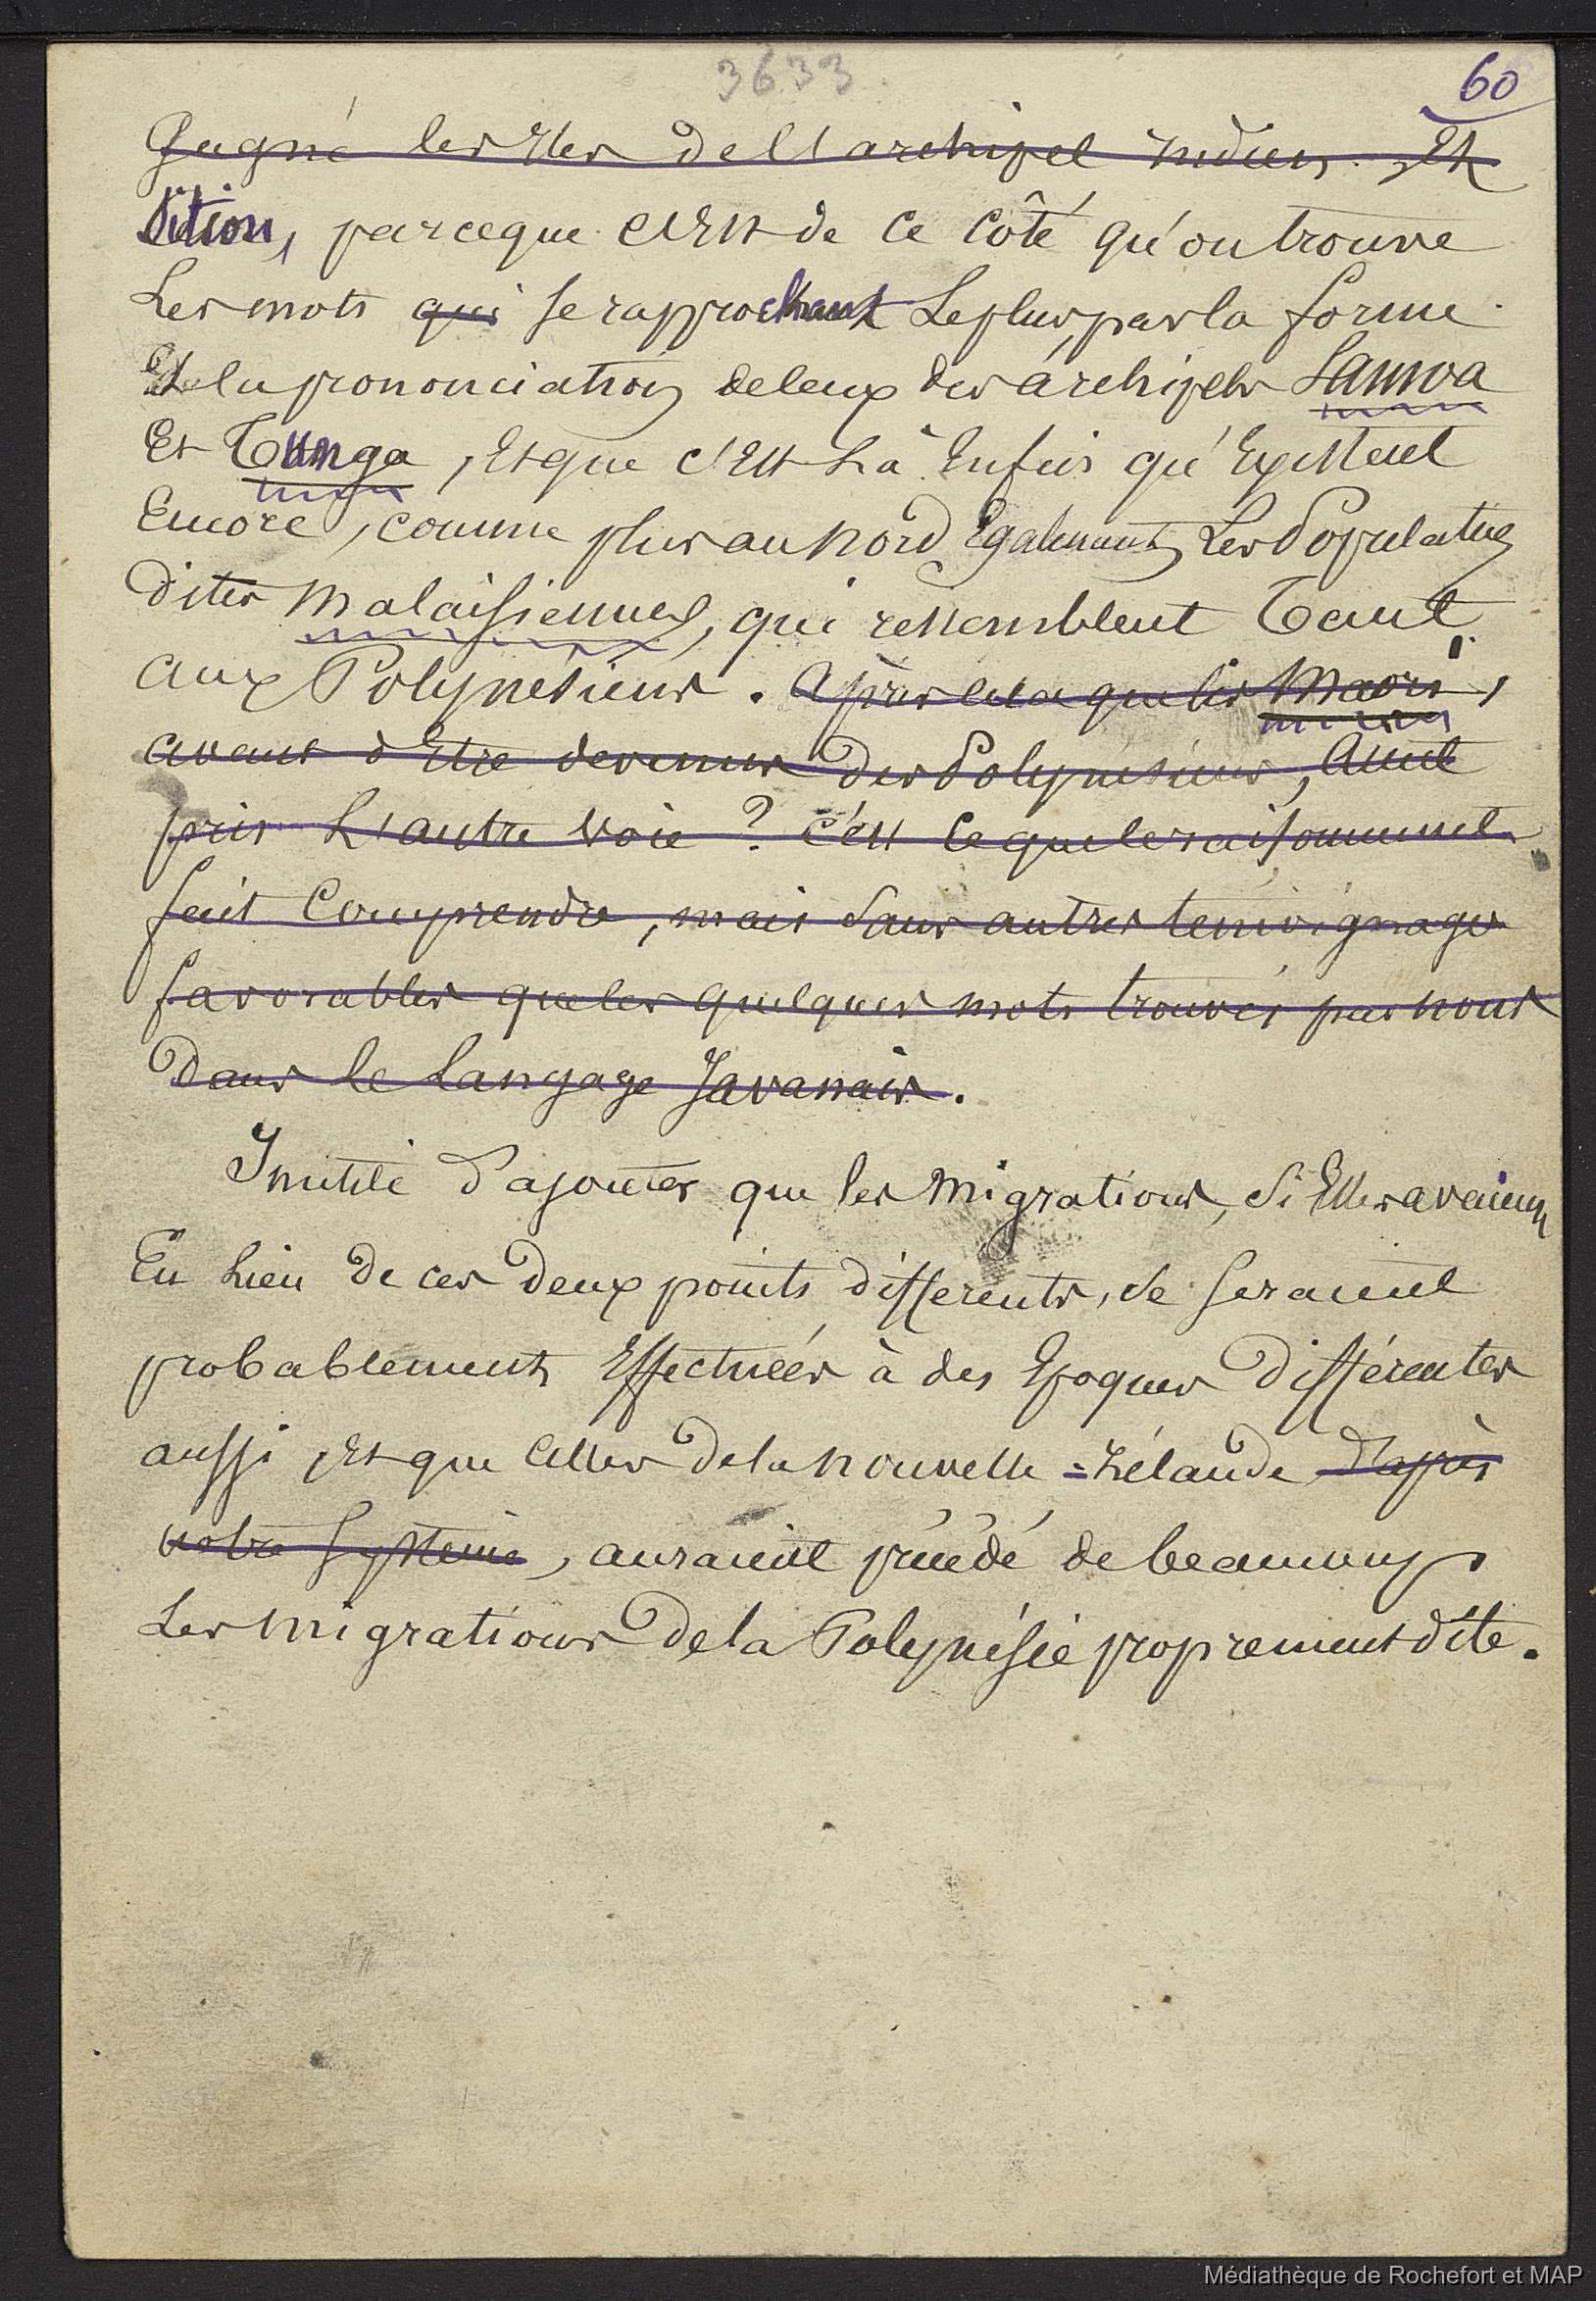 3633
60
Gagné les Iles de l'archipel indien. Et
dition, parceque c'est de ce côté qu'on trouve
Les mots qui se rapprochant Le plus, par la forme
Et la prononciation de ceux des archipels Samoa
Et Tunga, Et que c'est Là Enfin qu'Existent
Encore, comme plus au nord Egalement, Les Populations
Dites Malaisiennes, qui ressemblent Tant
aux Polynésiens. Après cela que les Maori,
avant d'Etre devenus Des Polynésiens, aient
pris L'autre voie ? c'est ce que le raisonnement
fait Comprendre, mais Sans autres témoignages
favorables que les quelques mots trouvés par nous
Dans le Langage Javanais.
Inutile D'ajouter que les Migrations, Si Elles avaient
Eu Lieu De ces Deux points différents, Se Seraient
probablement Effectuées à des Epoques Différentes
aussi, Et que Celles De la nouvelle=Zélande D'après
notre Système, auraient précédé de beaucoup
Les Migrations De la Polynésie proprement dite.
Médiathèque de Rochefort et MAP